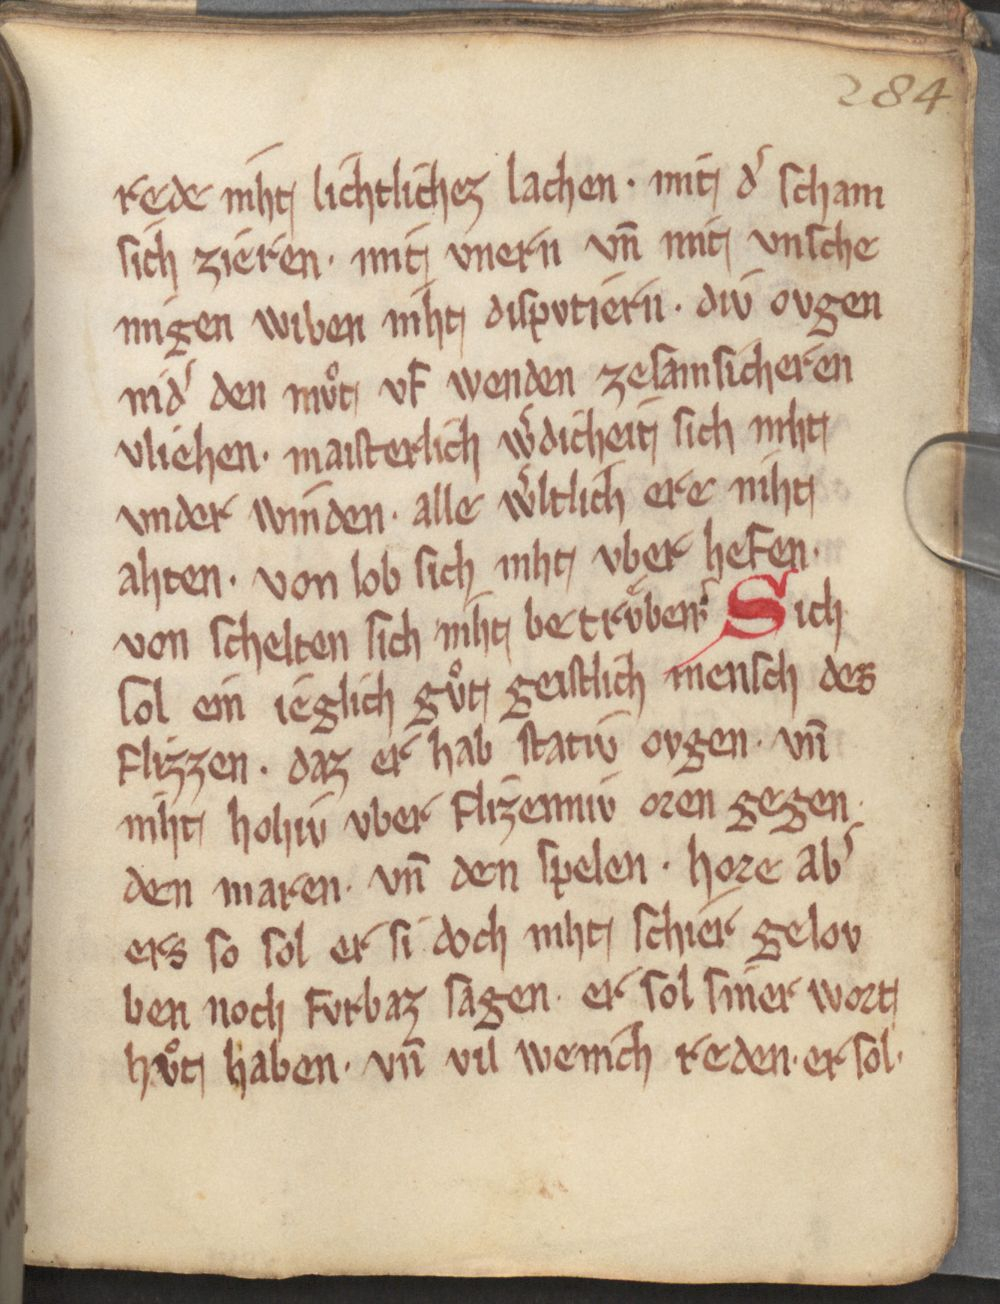 284
rede niht lichtlichez lachen · mit d᾽ scham
sich zieren · mit vnern vn̄ mit vnsche
migen wiben niht dispvtiern · div ovgen
nid᾽ den mvͦt vf wenden zesamsicheren
vliehen · maisterlich w᾽dicheit sich niht
vnder winden · alle w᾽ltlich ere niht
ahten · von lob sich niht vber hefen ·
von schelten sich niht betrvͤben · Sich
sol ein ieglich gvͦt geistlich mensch des
flizzen · daz er hab stativ ovgen · vn̄
niht hohiv vber flizenniv oren gegen ·
den maren · vn̄ den spelen · hore ab᾽
ers so sol er si doch niht schier gelov
ben noch fvrbaz sagen · er sol siner wort
hvͦt haben · vn̄ vil wenich reden · er sol ·